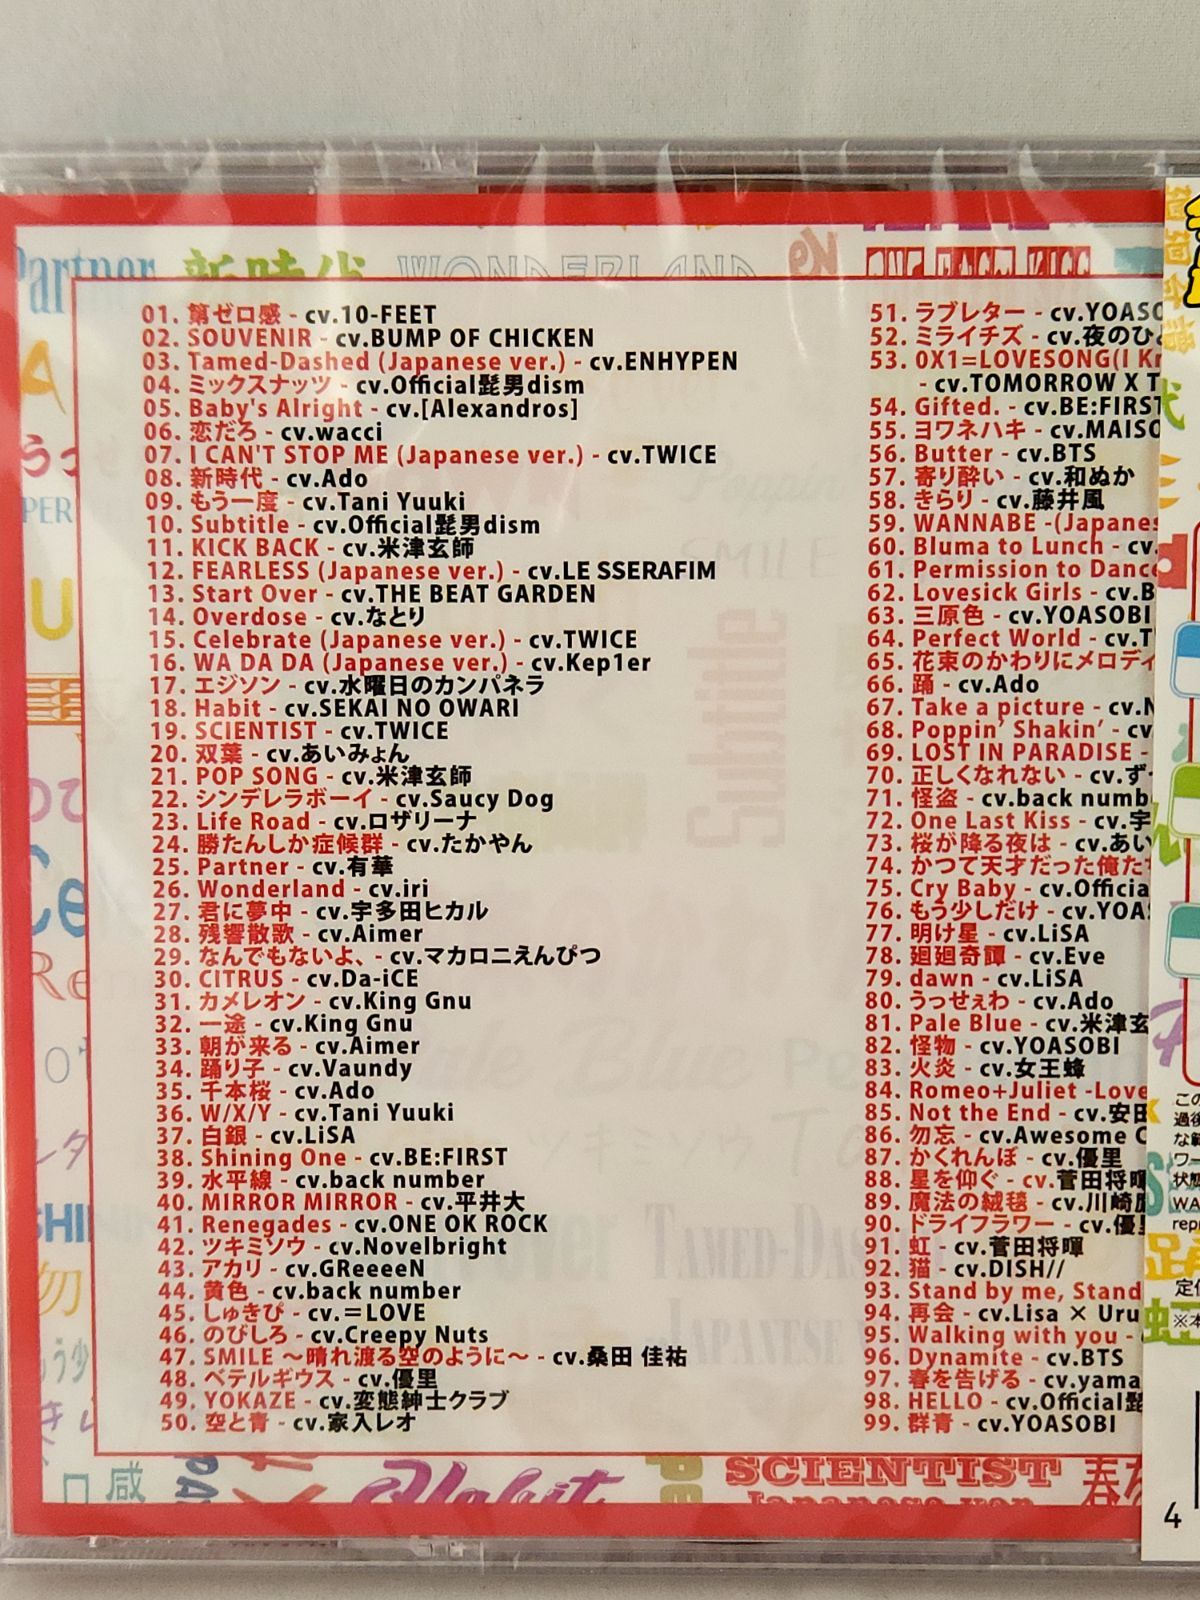 Partner 新時代 WONDERLAND
ONE LAST KISS
01. 第ゼロ感 - cv.10-FEET
02. SOUVENIR - cv.BUMP OF CHICKEN
03. Tamed-Dashed (Japanese ver.) - cv.ENHYPEN
04. ミックスナッツ - cv.Official髭男dism
05. Baby's Alright - cv.[Alexandros]
06. 恋だろ - cv.wacci
07. I CAN'T STOP ME (Japanese ver.) - cv.TWICE
08. 新時代 - cv.Ado
09. もう一度 - cv.Tani Yuuki
10. Subtitle - cv.Official髭男dism
11. KICK BACK - cv.米津玄師
12. FEARLESS (Japanese ver.) - cv.LE SSERAFIM
13. Start Over - cv.THE BEAT GARDEN
14. Overdose - cv.なとり
15. Celebrate (Japanese ver.) - cv.TWICE
16. WA DA DA (Japanese ver.) - cv.Kep1er
17. エジソン - cv.水曜日のカンパネラ
18. Habit - cv.SEKAI NO OWARI
19. SCIENTIST - cv.TWICE
20. 双葉 - cv.あいみょん
21. POP SONG - cv.米津玄師
22. シンデレラボーイ - cv.Saucy Dog
23. Life Road - cv.ロザリーナ
24. 勝たんしか症候群 - cv.たかやん
25. Partner - cv.有華
26. Wonderland - cv.iri
27. 君に夢中 - cv.宇多田ヒカル
28. 残響散歌 - cv.Aimer
29. なんでもないよ、 - cv.マカロニえんぴつ
30. CITRUS - cv.Da-iCE
31. カメレオン - cv.King Gnu
32. 一途 - cv.King Gnu
33. 朝が来る - cv.Aimer
34. 踊り子 - cv.Vaundy
35. 千本桜 - cv.Ado
36. W/X/Y - cv.Tani Yuuki
37. 白銀 - cv.LiSA
38. Shining One - cv.BE:FIRST
39. 水平線 - cv.back number
40. MIRROR MIRROR - cv.平井大
41. Renegades - cv.ONE OK ROCK
42. ツキミソウ - cv.Novelbright
43. アカリ - cv.GReeeeN
44. 黄色 - cv.back number
45. しゅきぴ - cv.=LOVE
46. のびしろ - cv.Creepy Nuts
47. SMILE ～晴れ渡る空のように～ - cv.桑田 佳祐
48. ベテルギウス - cv.優里
49. YOKAZE - cv.変態紳士クラブ
50. 空と青 - cv.家入レオ
51. ラブレター - cv.YOASO
52. ミライチズ - cv.夜のひ
53. 0X1=LOVESONG(I Kn
- cv.TOMORROW X T
54. Gifted. - cv.BE:FIRST
55. ヨワネハキ - cv.MAISO
56. Butter - cv.BTS
57. 寄り酔い - cv.和ぬか
58. きらり - cv.藤井風
59. WANNABE -(Japanes
60. Bluma to Lunch - cv.
61. Permission to Dance
62. Lovesick Girls - cv.B
63. 三原色 - cv.YOASOBI
64. Perfect World - cv.T
65. 花束のかわりにメロディ
66. 踊 - cv.Ado
67. Take a picture - cv.N
68. Poppin' Shakin' - cv.
69. LOST IN PARADISE -
70. 正しくなれない - cv.ず
71. 怪盗 - cv.back numb
72. One Last Kiss - cv.宇
73. 桜が降る夜は - cv.あい
74. かつて天才だった俺た
75. Cry Baby - cv.Officia
76. もう少しだけ - cv.YOA
77. 明け星 - cv.LiSA
78. 廻廻奇譚 - cv.Eve
79. dawn - cv.LiSA
80. うっせぇわ - cv.Ado
81. Pale Blue - cv.米津玄
82. 怪物 - cv.YOASOBI
83. 火炎 - cv.女王蜂
84. Romeo+Juliet -Love
85. Not the End - cv.安田
86. 勿忘 - cv.Awesome C
87. かくれんぼ - cv.優里
88. 星を仰ぐ - cv.菅田将暉
89. 魔法の絨毯 - cv.川崎鷹
90. ドライフラワー - cv.優里
91. 虹 - cv.菅田将暉
92. 猫 - cv.DISH//
93. Stand by me, Stand
94. 再会 - cv.Lisa × Uru
95. Walking with you -
96. Dynamite - cv.BTS
97. 春を告げる - cv.yama
98. HELLO - cv.Official髭
99. 群青 - cv.YOASOBI
Habit
SCIENTIST
Japanese ver.
4